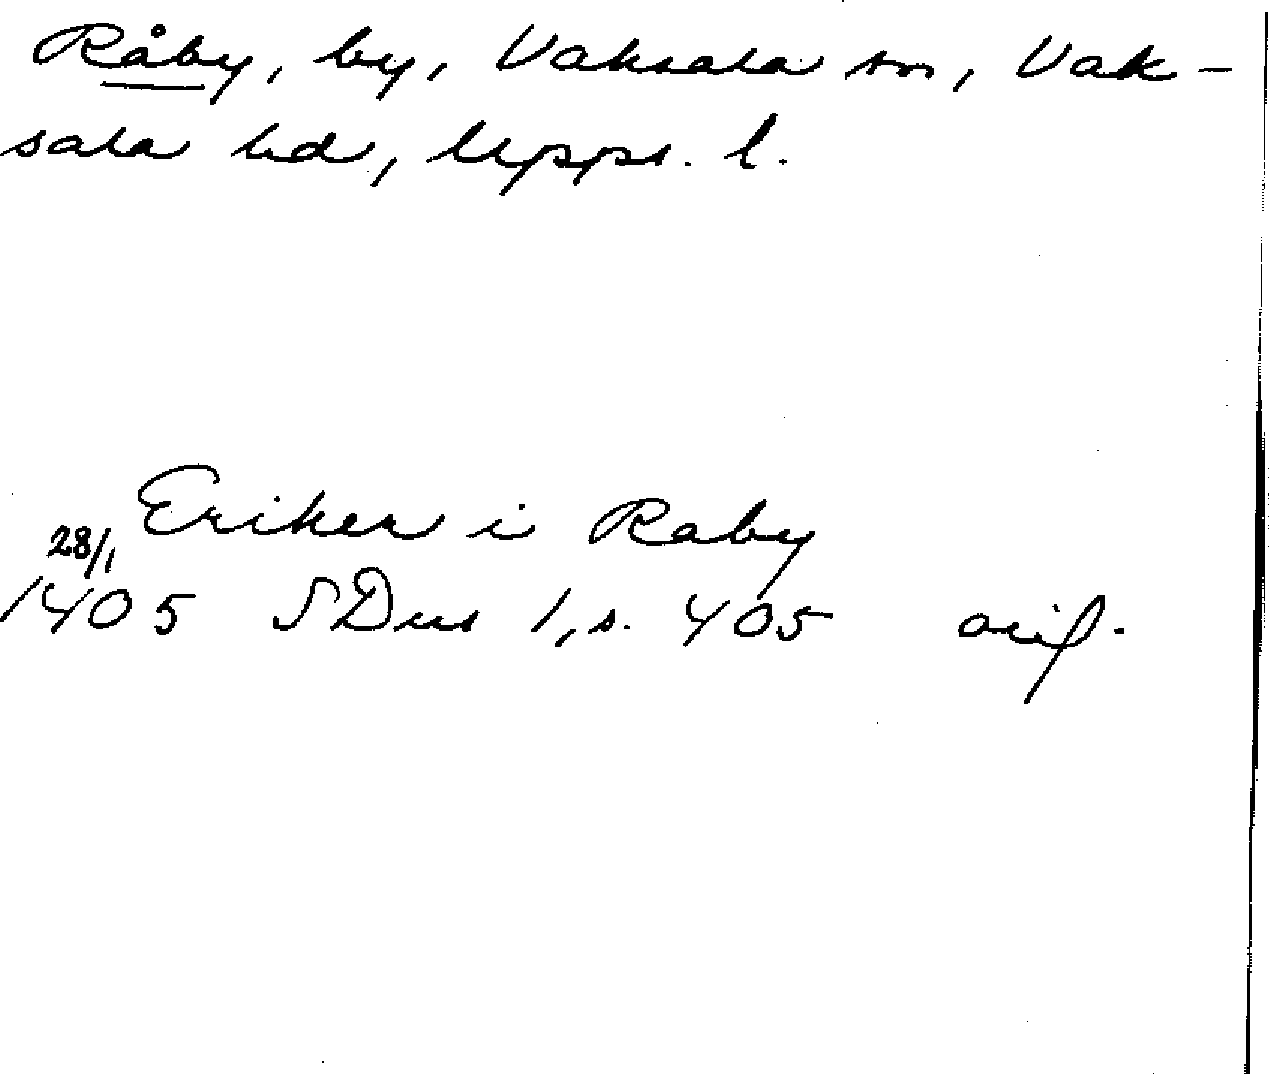 Råby, by, Vaksala sn, Vak-
sala hd, Upps. l.
Eriker i Raby
28/1
1405 SDns 1, s. 405 orig.